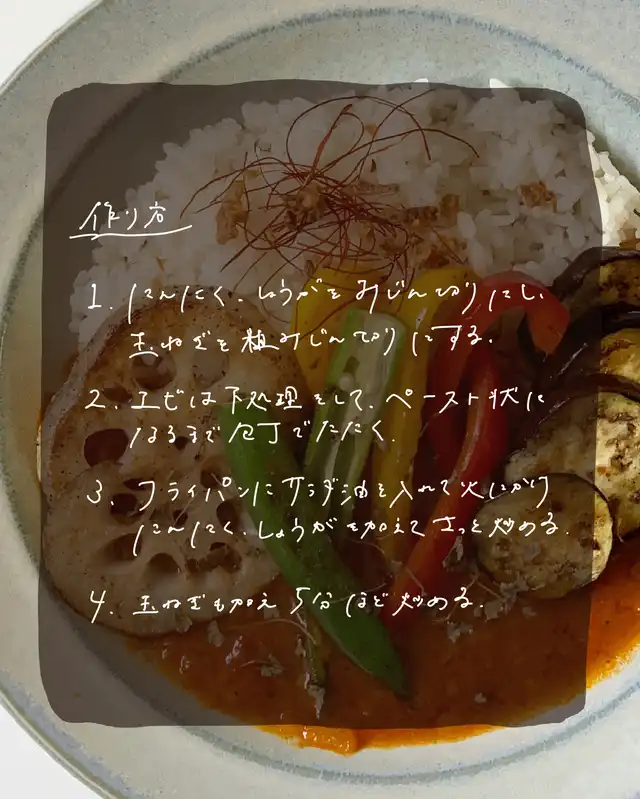 作り方
1. にんにく、しょうがをみじん切りにし、
玉ねぎを粗みじん切りにする。
2. エビは下処理をして、ペースト状に
なるまで包丁でたたく。
3. フライパンにサラダ油を入れて火にかけ
にんにく、しょうがを加えてさっと炒める。
4. 玉ねぎも加え5分ほど炒める。